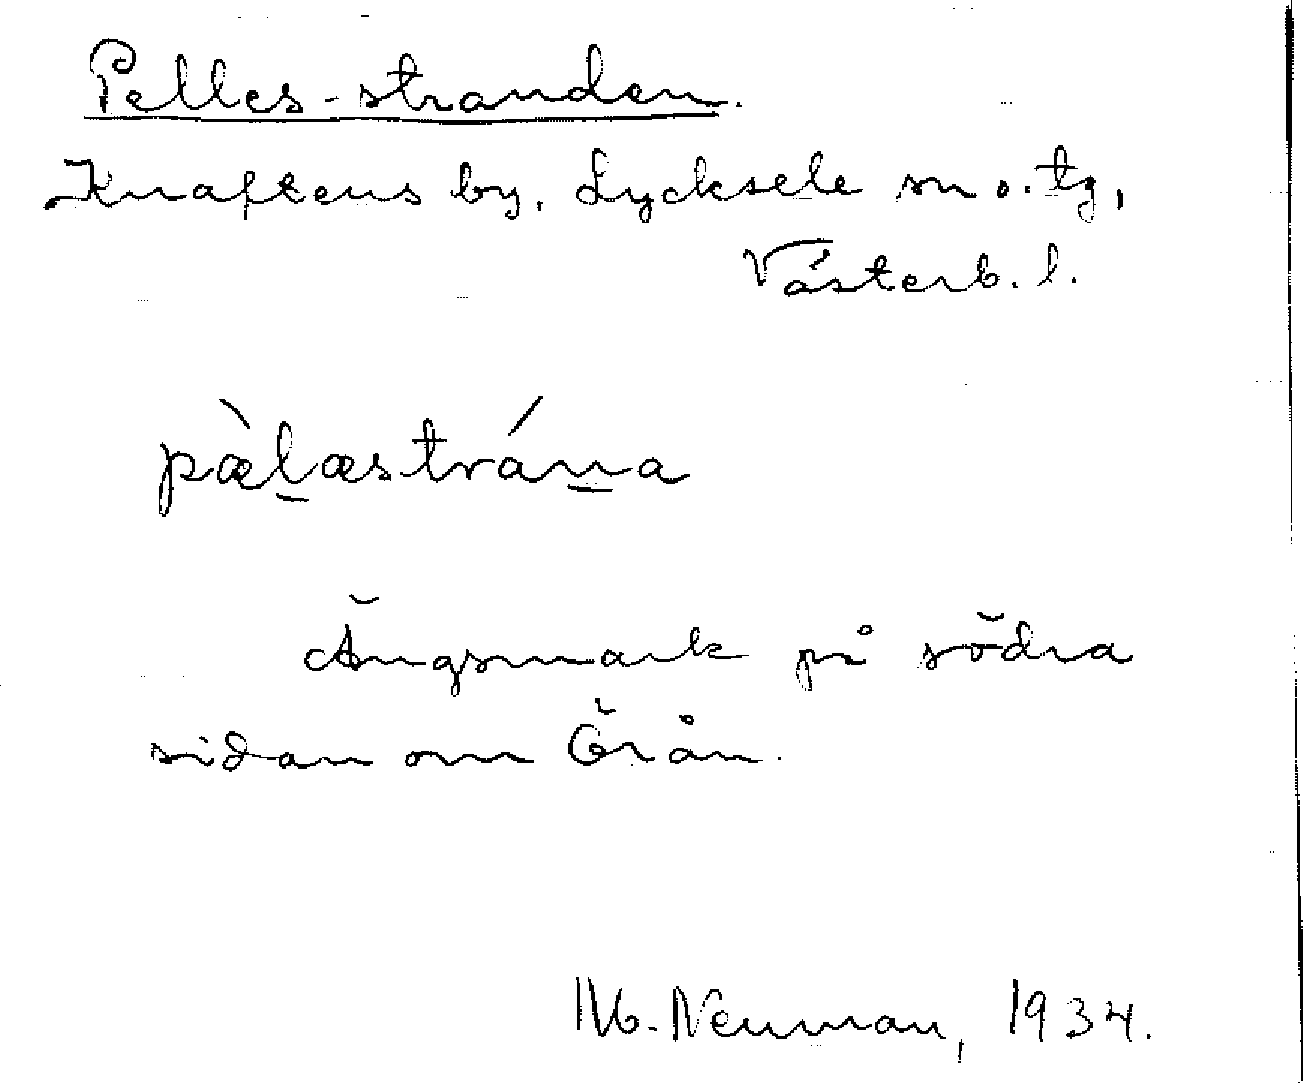 Pelles-stranden.
Knaftens by, Lycksele sn o. tg,
Västerb. l.
pæ̀l̲æstrán̲a
Ängsmark på södra
sidan om Örån.
M. Neuman, 1934.